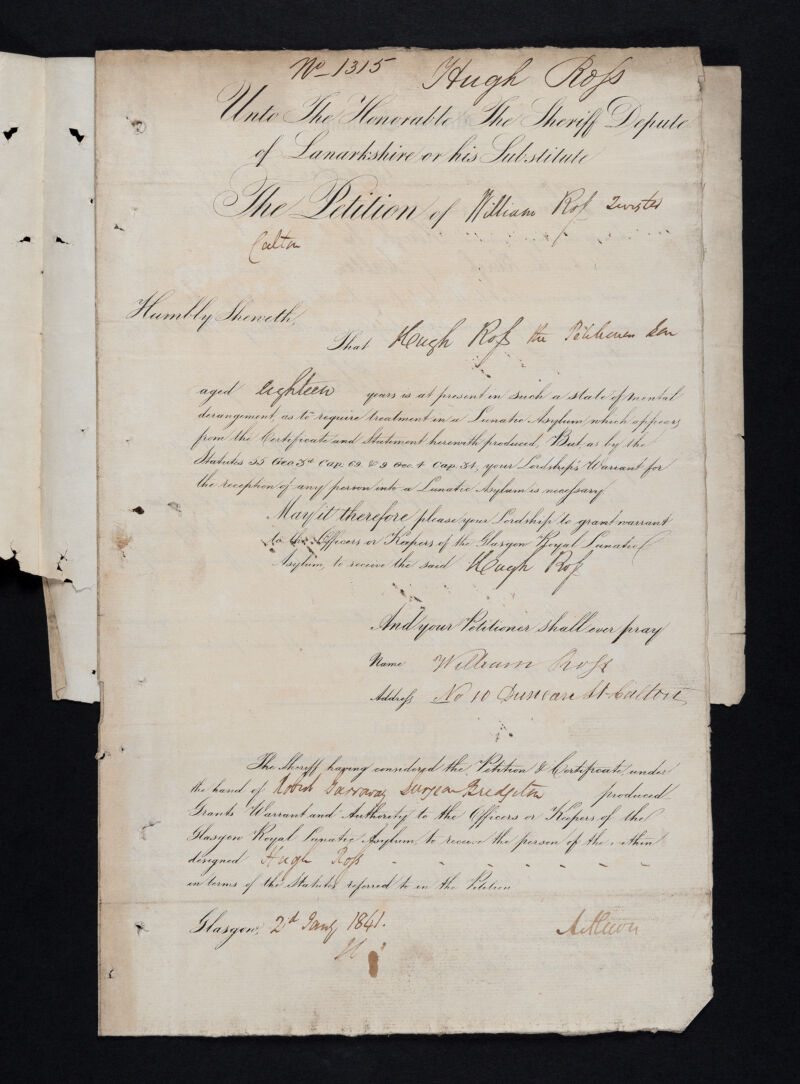 No 1315 Hugh Ross
Unto The Honorable The Sheriff Depute
of Lanarkshire or his Substitute
The Petition of William Ross Twister
Calton
Humbly Sheweth,
That Hugh Ross the Petitioners Son
aged eighteen years is at present in such a state of mental
derangement, as to require treatment in a Lunatic Asylum, which appears
from the Certificate and Statement herewith produced, But as by the
Statutes 55 Geo. 3d Cap. 69. & 9 Geo. 4 Cap. 34, your Lordship's Warrant for
the reception of any person into a Lunatic Asylum is necessary
May it therefore please your Lordship to grant warrant
to the Officers or Keepers of the Glasgow Royal Lunatic
Asylum, to receive the said Hugh Ross
And your Petitioner shall ever pray
Name William Ross
Address No 10 Duncan St Calton
The Sheriff having considered the Petition & Certificate under
the hand of Robert Surgeon Bridgeton produced
Grants Warrant and Authority to the Officers or Keepers of the
Glasgow Royal Lunatic Asylum, to receive the person of the within
designed Hugh Ross
in terms of the Statutes referred to in the Petition
Glasgow, 2d Jany 1841.